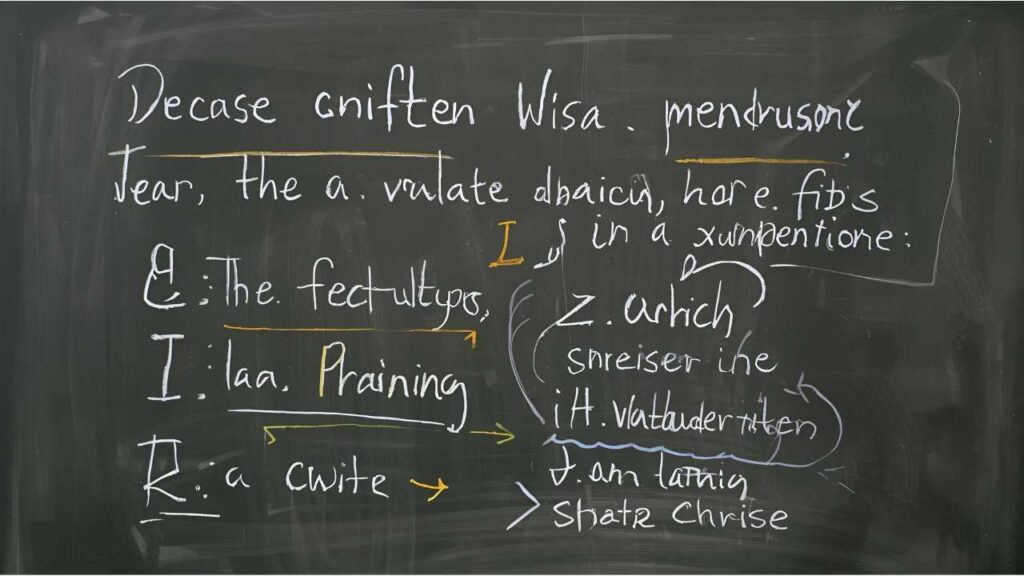 Decase cniften Wisa. mendrusone
Tear, the a. vulate dbaicy, hore. fibs
I in a xumpentione:
E: The. fectultypos,
I: laa. Praining
R: a cwite →
Z. arhich
snreiser ihe
iH. Vlatbuder
J. am tatnig
> Shatr Chrise